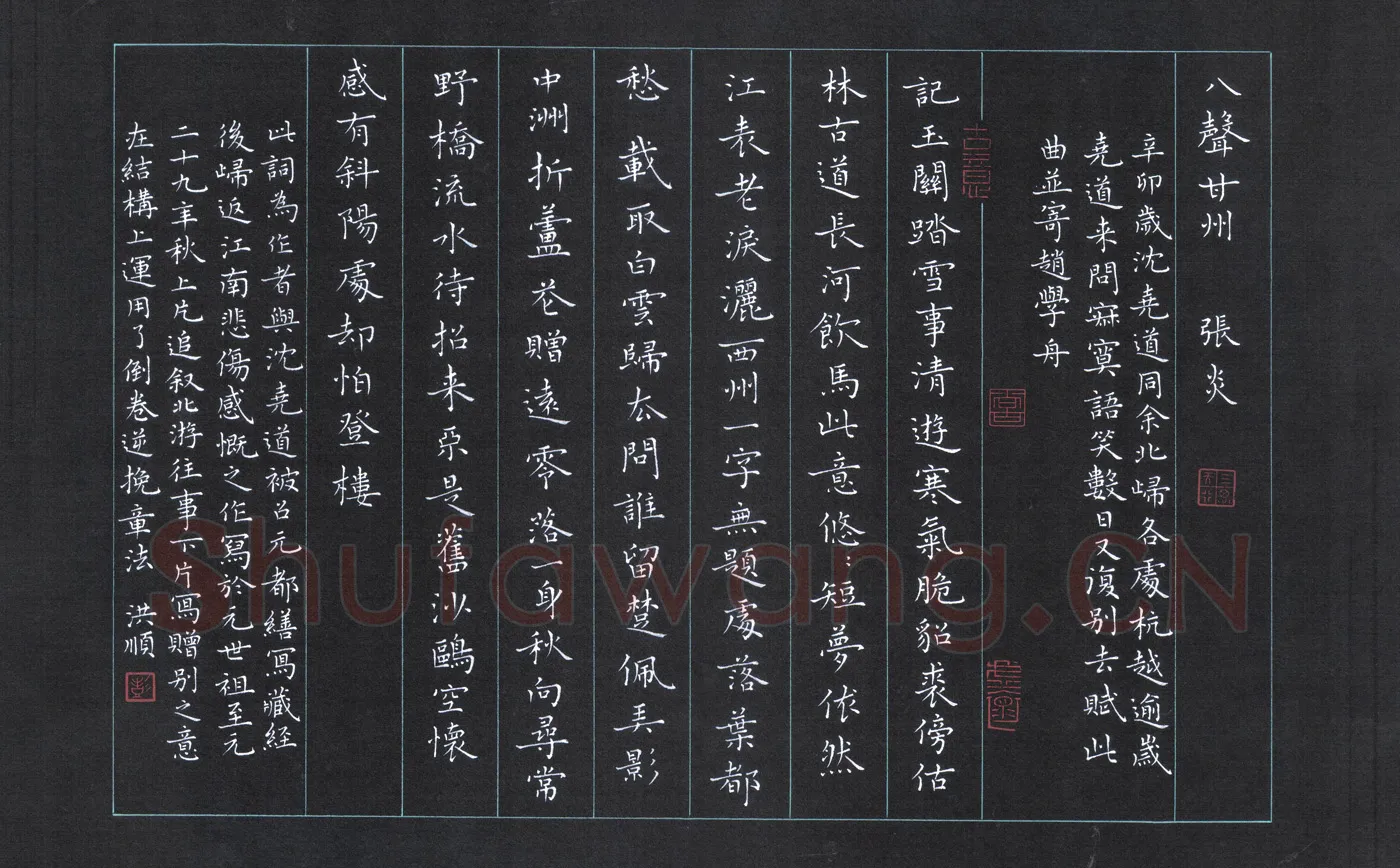 八聲甘州 張炎
辛卯歲沈堯道同余北歸各處杭越逾歲
堯道来問寂寞語笑數日又復别去賦此
曲並寄趙學舟
記玉關踏雪事清遊寒氣脆貂裘傍估
林古道長河飲馬此意悠〻短夢依然
江表老淚灑西州一字無題處落葉都
愁載取白雲歸厺問誰留楚佩弄影
中洲折蘆花贈遠零落一身秋向尋常
野橋流水待招来不是舊沙鷗空懷
感有斜陽處却怕登樓
此詞為作者與沈堯道被召元都繕寫藏経
後歸返江南悲傷感慨之作寫於元世祖至元
二十九年秋上片追叙北游往事下片寫贈别之意
在結構上運用了倒卷逆挽章法 洪順
Shufawang.CN